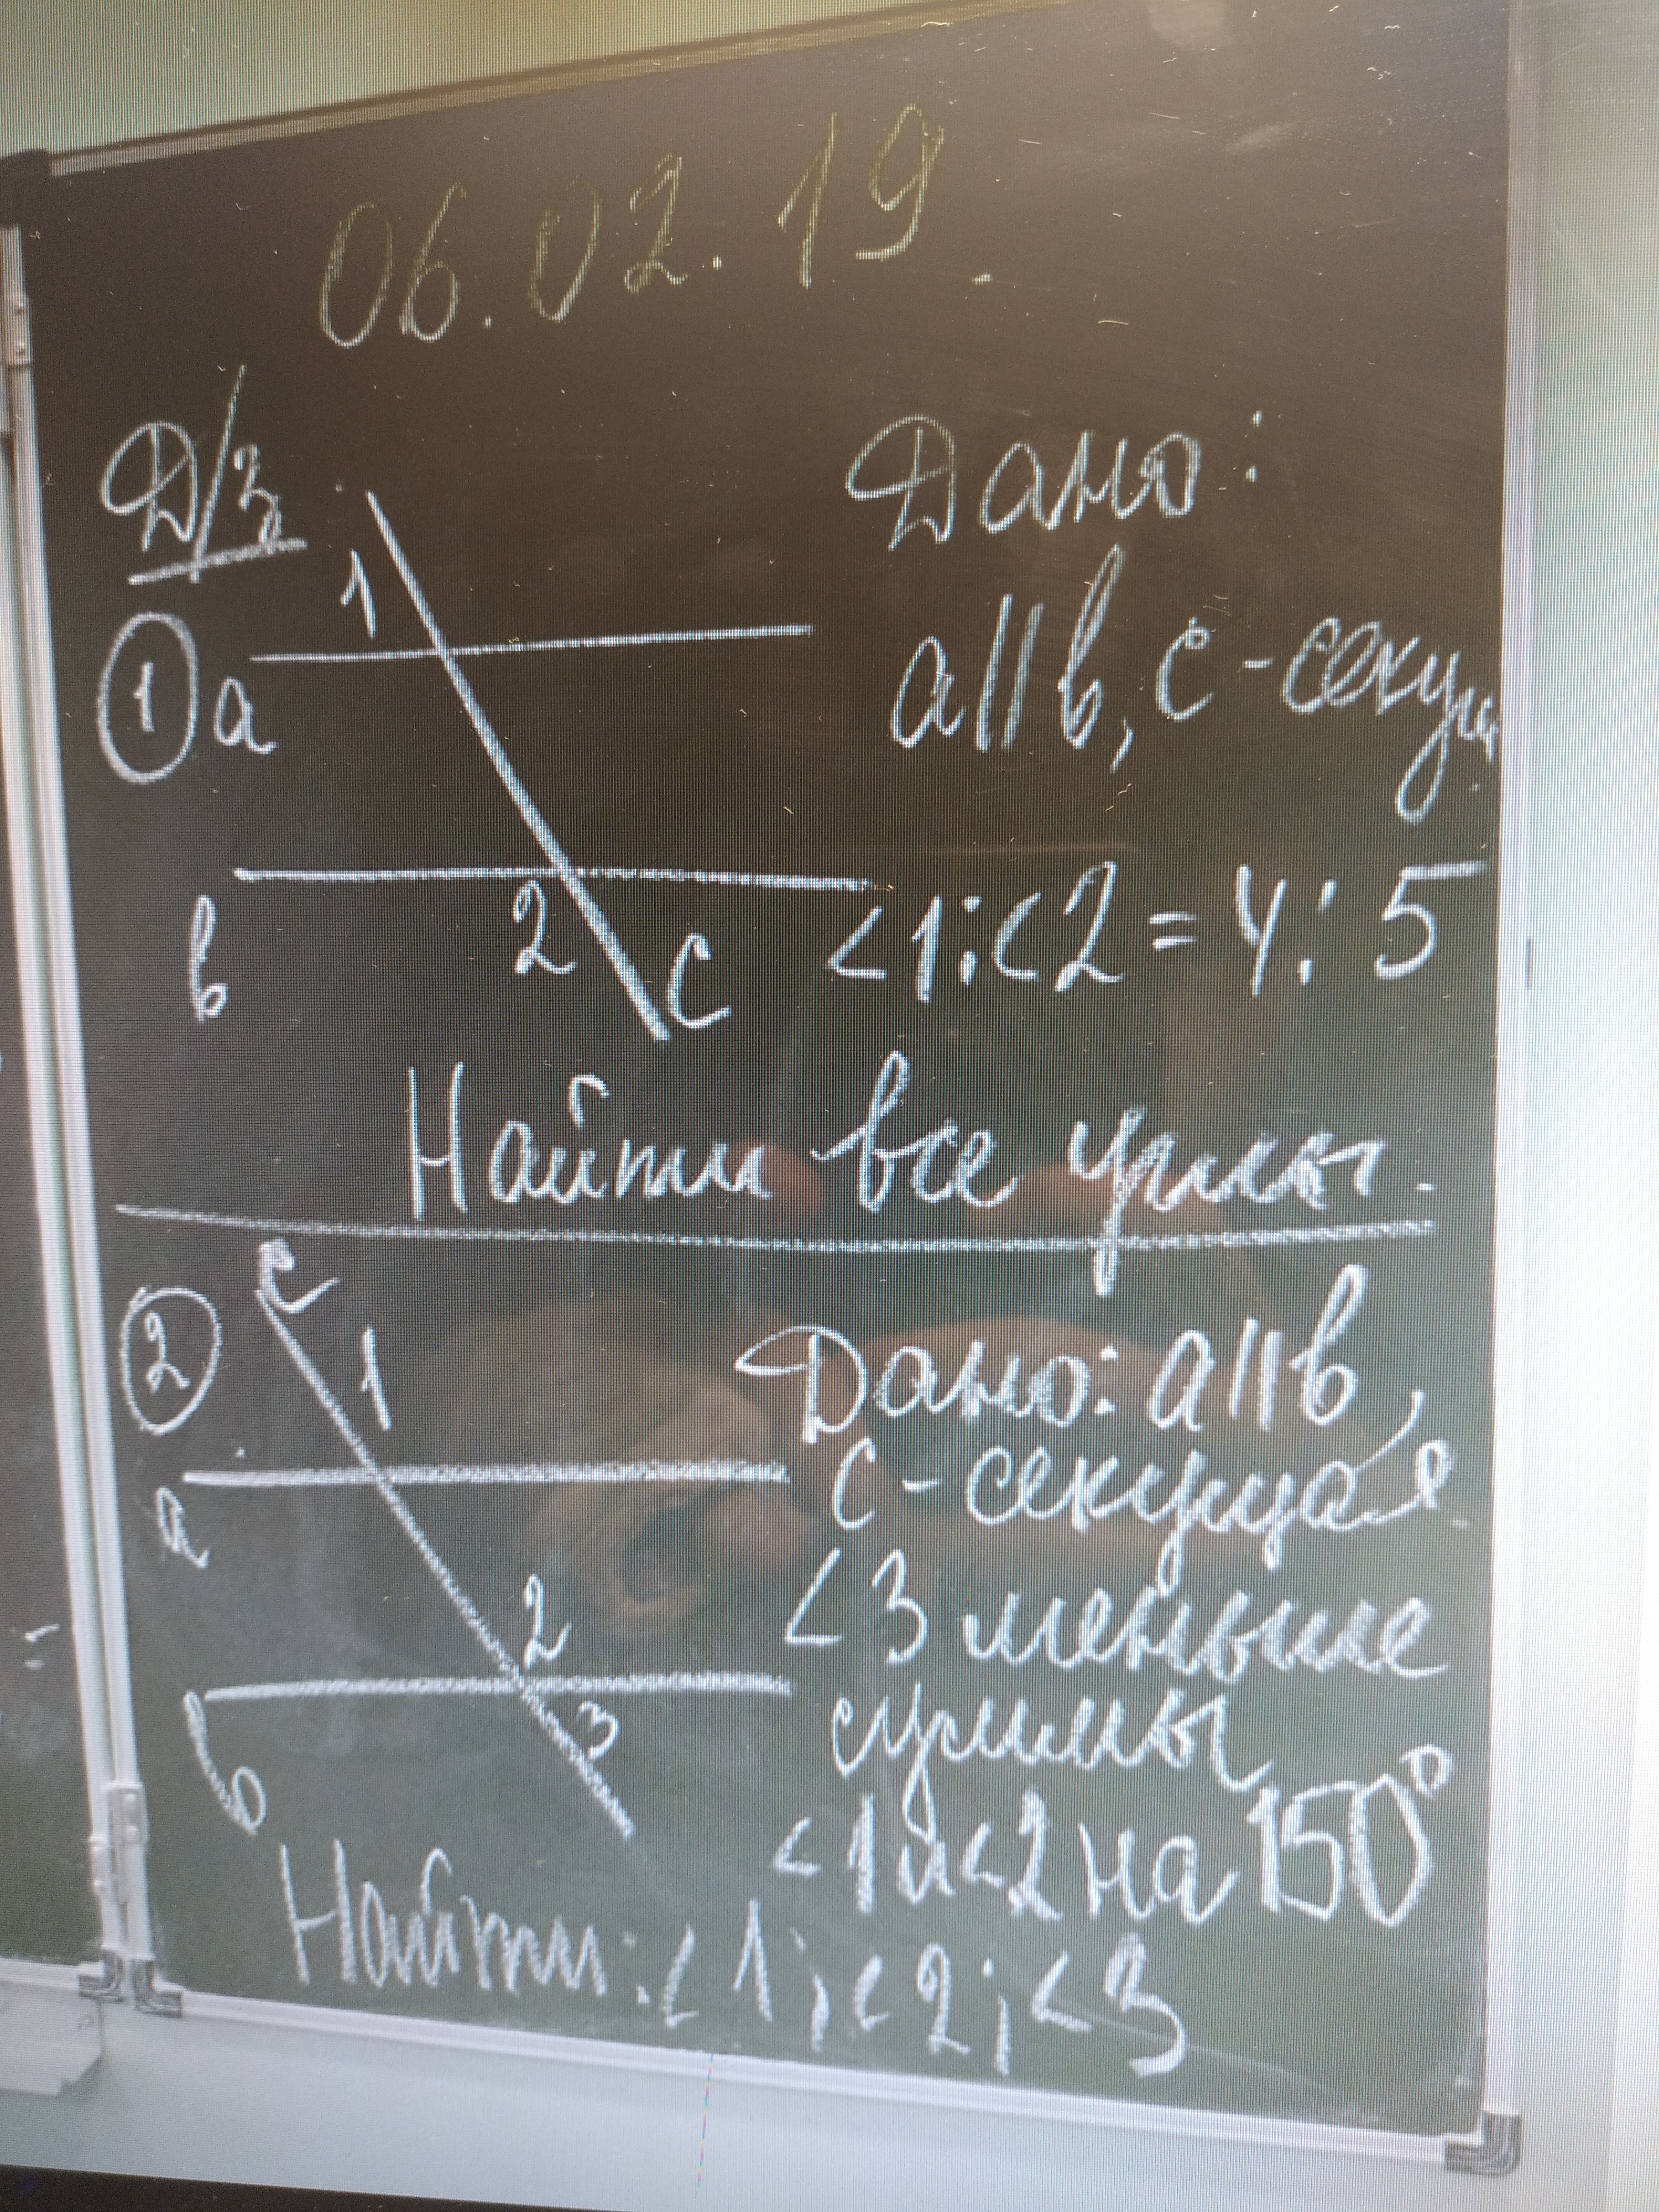 06.02.19.
Д/з
Дано:
1
① a
a||b, c - секущ.
b
2
c
<1:<2 = 4:5
Найти все углы.
②
c
1
Дано: a||b,
c - секущая
a
<3 меньше
2
суммы
b
3
<1 и <2 на 150°
Найти: <1; <2; <3